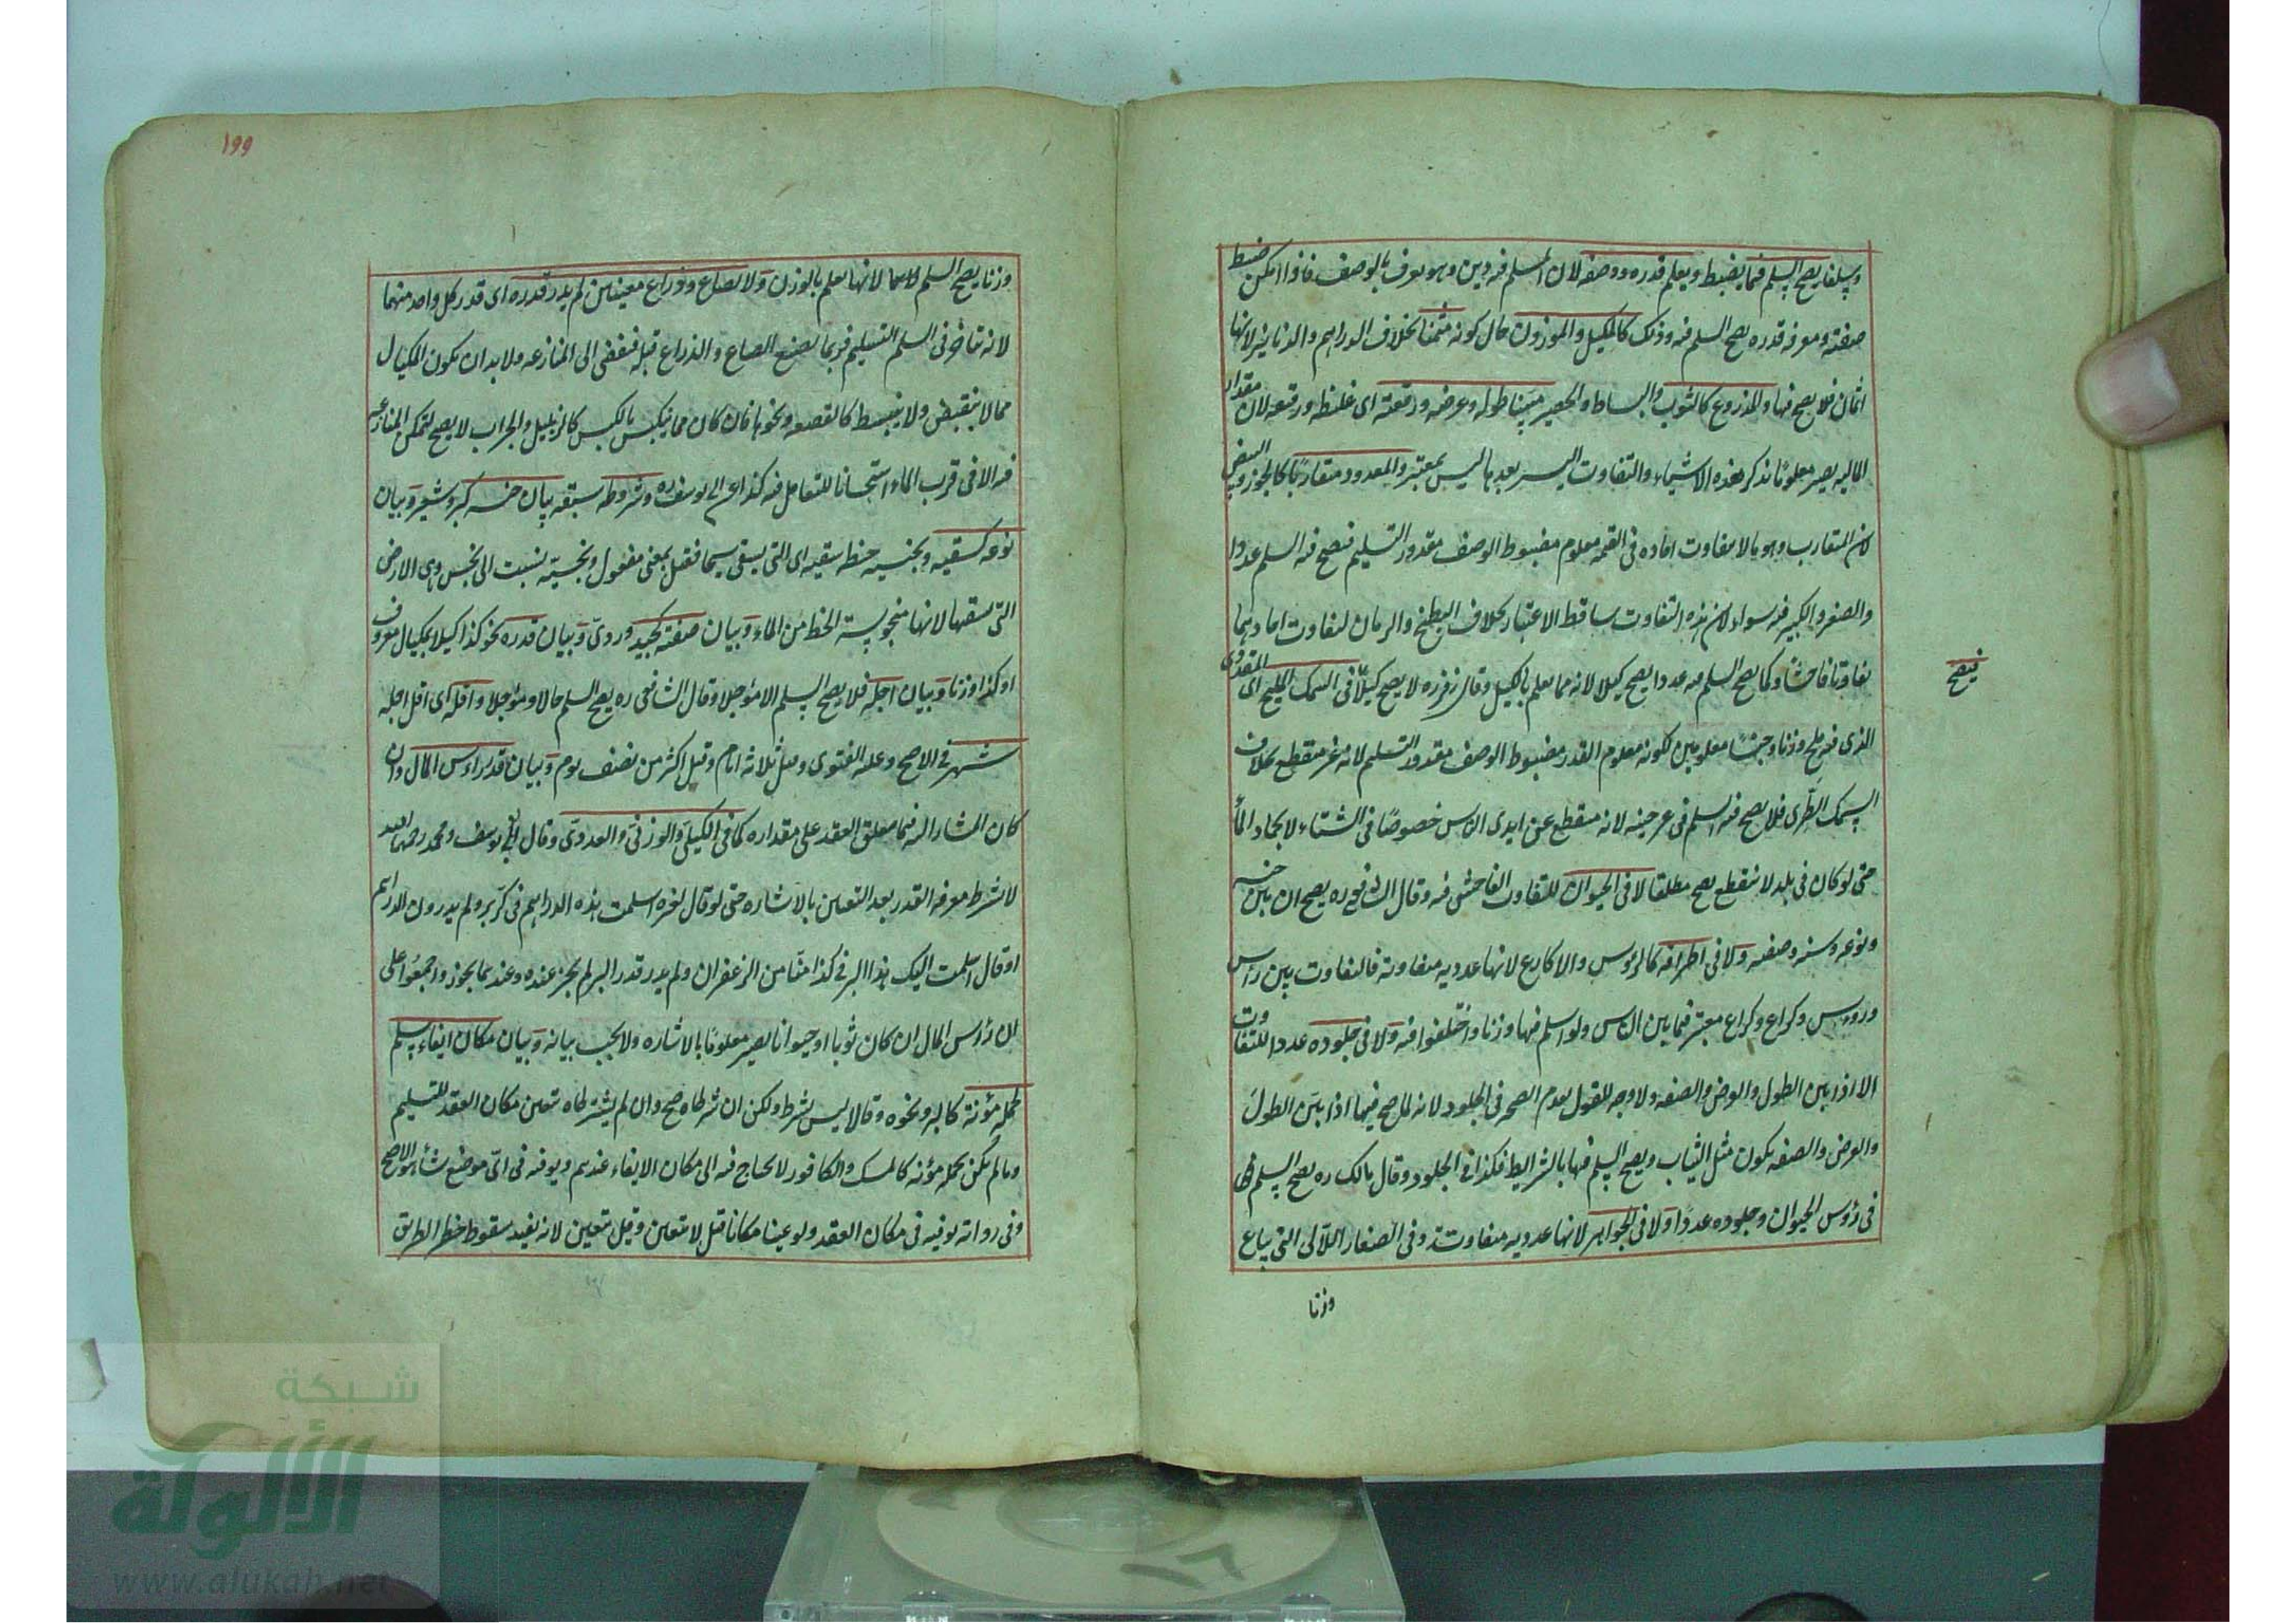 وسلفا يصح السلم فيما يضبط ويعلم قدره ووصفه لان المسلم فيه دين وهو يعرف بالوصف فاذا امكن ضبط
صفته ومعرفة قدره يصح السلم فيه وذلك كالمكيل والموزون حال كونه مثمنا بخلاف الدراهم والدنانير لانها
اثمان فلا يصح فيها والمذروع كالثوب والبساط والحصير مبينا طوله وعرضه ورقعته اى غلظه ورقعه لان مقدار
المالية يصير معلوما بذكر هذه الاشياء والتفاوت اليسير بعدها ليس بمعتبر والمعدود متقاربا كالجوز والبيض
لان المتقارب وهو ما لا يتفاوت احاده فى القيمة معلوم مضبوط الوصف مقدور التسليم فيصح فيه السلم عددا
والصغير والكبير فيه سواء لان هذه التفاوت ساقط الاعتبار بخلاف البطيخ والرمان لتفاوت احادهما
تفاوتا فاحشا وكما يصح السلم فيه عددا يصح كيلا لانه مما يعلم بالكيل وقال زفر ره لا يصح كيلا فى السمك المليح اى القديدى
فيصح
الذى فيه ملح وزنا وجنسا معلومين لكونه معلوم القدر مضبوط الوصف مقدور التسليم لانه غير منقطع بخلاف
السمك الطرى فلا يصح فيه السلم فى غير حينه لانه منقطع عن ايدى الناس خصوصا فى الشتاء لانجماد الماء
حتى لو كان فى بلد لا ينقطع يصح مطلقا لا فى الحيوان للتفاوت الفاحش فيه وقال الشافعى ره يصح ان بين جنسه
ونوعه وسنه وصفته ولا فى اطرافه كالرؤس والاكارع لانها عددية متفاوتة فالتفاوت بين رأس
ورؤس وكراع وكراع معتبر فيما بين الناس ولو اسلم فيها وزنا واختلفوا فيه ولا فى جلوده عددا للتفاوت
الا اذا بين الطول والعرض والصفة ولا وجه للقول بعدم الصحة فى الجلود لانه لما صح فيما اذا بين الطول
والعرض والصفة يكون مثل الثياب ويصح السلم فيها بالشرايط فكذا فى الجلود وقال مالك ره يصح السلم
فى رؤس الحيوان وجلوده عددا ولا فى الجواهر لانها عددية متفاوتة وفى الصغار اللآلى التى يباع
وزنا
١٩٩
وزنا يصح السلم لانها يعلم بالوزن ولا بصاع وذراع معينين لم يدر قدره اى قدر كل واحد منهما
لانه يتاخر فى السلم التسليم فربما يضيع الصاع والذراع قبله فيفضى الى المنازعة ولا بد ان يكون المكيال
مما لا ينقبض ولا ينبسط كالقصعة ونحوها فان كان مما ينكبس بالكبس كالزنبيل والجراب لا يصح لتمكن المنازعة
فيه الا فى قرب الماء استحسانا للتعامل فيه كذا عن ابى يوسف ره وشروطه سبعة بيان جنسه كبر وشعير وبيان
نوعه كسقية وبخسية حنطة سقية اى التى يسقى سيحا فعيل بمعنى مفعول وبخسية نسبت الى البخس وهى الارض
التى يسقيها لانها منجوسة الحظ من الماء وبيان صفته كجيد وردى وبيان قدره نحو كذا كيلا بمكيال معروف
او كذا وزنا وبيان اجله فلا يصح السلم الا مؤجلا وقال الشافعى ره يصح السلم حالا ومؤجلا واقله اى اقل اجله
شهر فى الاصح وعليه الفتوى وقيل ثلاثة ايام وقيل اكثر من نصف يوم وبيان قدر رأس المال وان
كان المشار اليه فيما يتعلق العقد على مقداره كما فى الكيلى والوزنى والعددى وقال ابو يوسف ومحمد رحمهما الله
لا يشترط معرفة القدر بعد التعيين بالاشارة حتى لو قال لغيره اسلمت هذه الدراهم فى كر بر ولم يدر وزن الدراهم
او قال اسلمت اليك هذا البر فى كذا منا من الزعفران ولم يدر قدر البر لم يجز عنده وعندهما يجوز واجمعوا على
ان رأس المال ان كان ثوبا او حيوانا يصير معلوما بالاشارة ولا يجب بيانه وبيان مكان ايفاء مسلم
لحمله مؤنة كالبر ونحوه وقالا ليس بشرط ولكن ان شرطاه صح وان لم يشترطاه تعين مكان العقد للتسليم
وما لم يكن لحمله مؤنة كالمسك والكافور لا يحتاج فيه الى مكان الايفاء عندهم ويوفيه فى اى موضع شاء هو الاصح
وفى رواية يوفيه فى مكان العقد ولو عينا مكانا قيل لا يتعين وقيل يتعين لانه يفيد سقوط خطر الطريق
شبكة
الألوكة
www.alukah.net